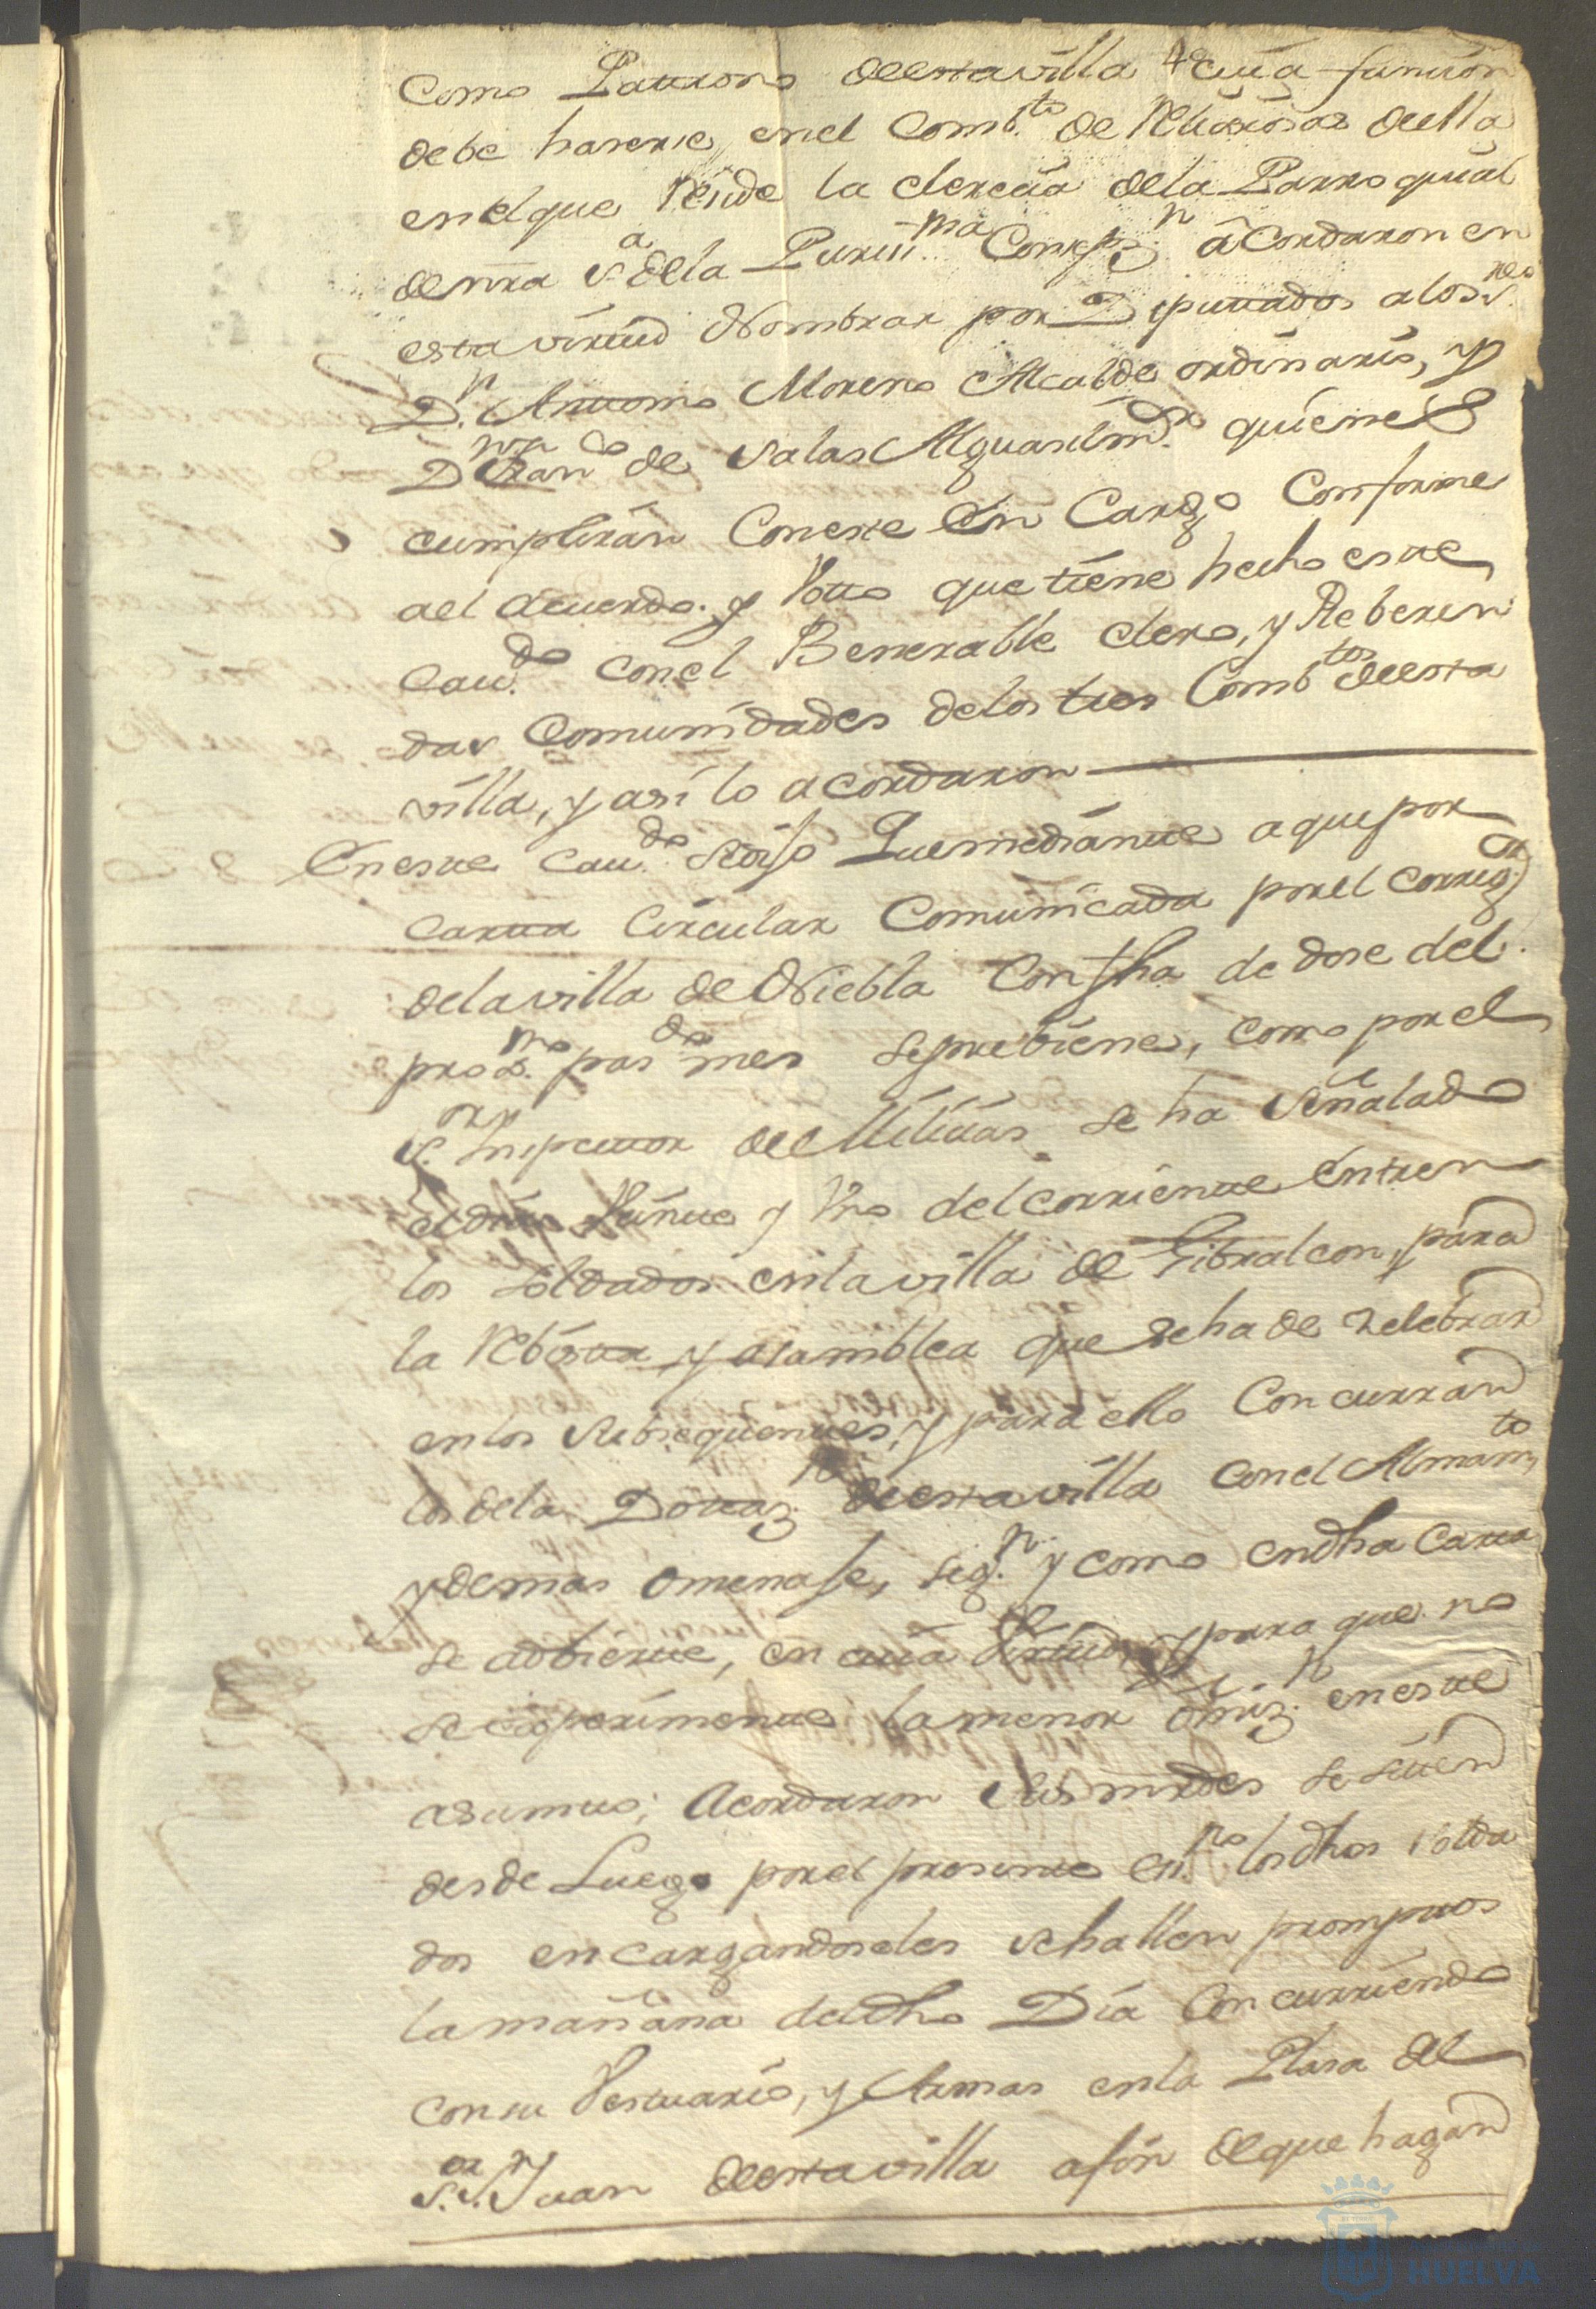 como Pattrono deesta villa cuia funcion
debe hacerse, en el Comb.to de Relixiosas della
en el que Recide la clerecia de la Parroquial
de nra S.a de la Puriss.ma Consepz.n acordaron en
esta virtud Nombrar por Diputtados a los S.res
D.n Anttonio Moreno Alcalde ordinario, y
D.n Fran.co de Salas Alguasil m.or quienes
cumpliran Con este En Cargo Conforme
ael acuerdo. y Votto que tiene hecho este
Cau.do con el Benerable clero, y Reberen
das Comunidades de los tres Comb.tos deesta
villa, y asi lo acordaron
En este Cau.do se dijo Que mediante a que por
Cartta Circular Comunicada por el Correg.or
de la villa de Niebla Con fha de dose del
pro.mo pas.do mes se prebiene, como por el
S.or Inspecttor de Milicias se ha Señalado
el dia Vainte y Vno del corriente Entren
los soldados en la villa de Gibraleon, para
la Rebista y asamblea que se ha de zelebrar
en los Subsequentes, y para ello Concurran
los de la Dottaz.n deesta villa con el Armam.to
y demas omenaje, seg.n y como en dha Carta
se adbierte, en cuia Virtud, y para que no
se experimente la menor omiz.n en este
asumto; Acordaron Sus mrdes se sitten
desde Luego por el presente es.no los dhos solda
dos encargandoseles se hallen promptos
la mañana de dho Dia Concurriendo
con su Vestuario, y Armas en la Plasa del
S.or S.n Juan deesta villa a fin de que hagan
HUELVA